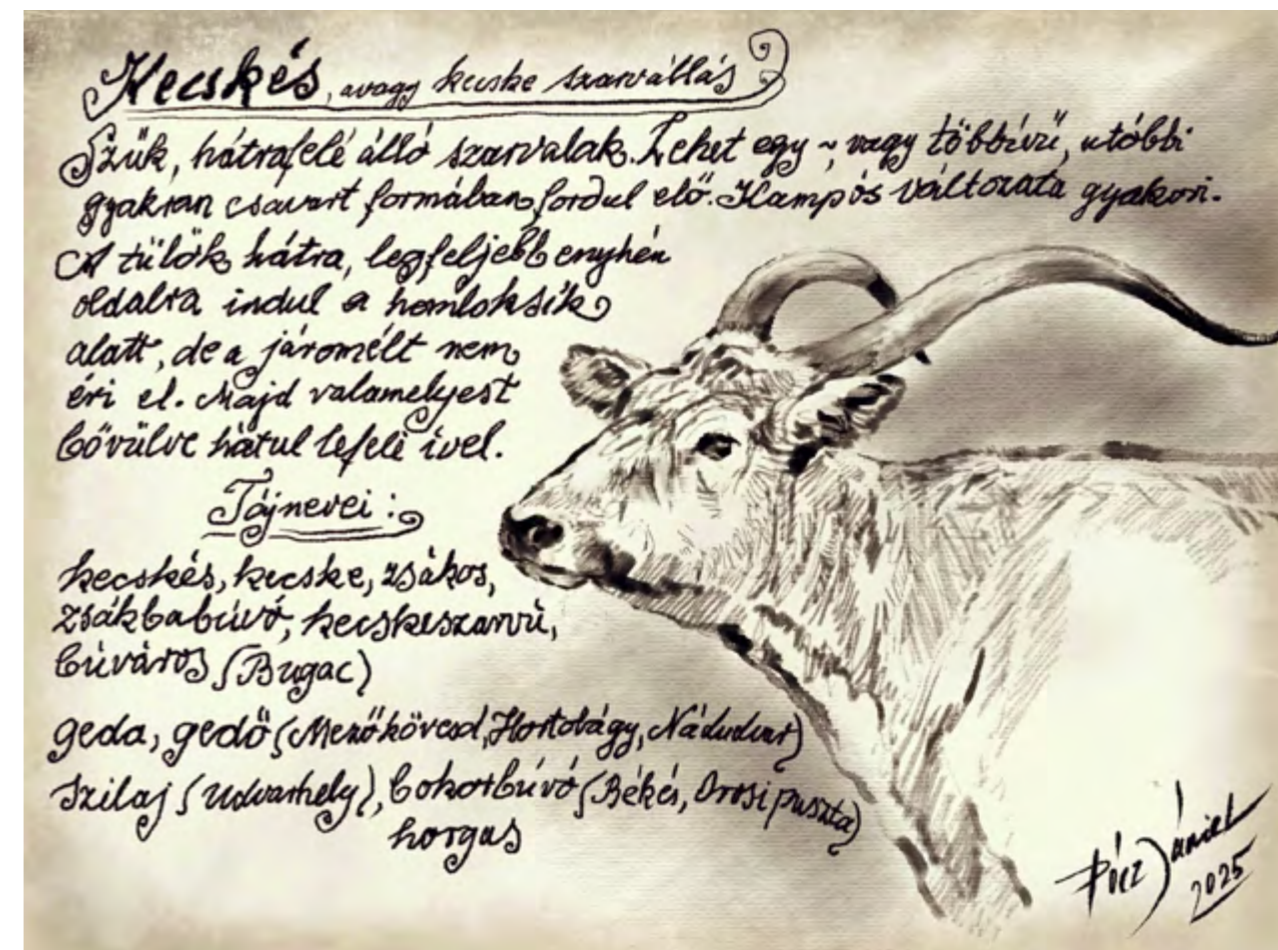 Kecskés, avagy kecske szarvállás
Szűk, hátrafelé álló szarvalak. Lehet egy ~, vagy többívű, utóbbi
gyakran csavart formában fordul elő. Kampós változata gyakori.
A tülök hátra, legfeljebb enyhén
oldalra indul a homloksík
alatt, de a járomélt nem
éri el. Majd valamelyest
bővülve hátul lefelé ível.
Tájnevei :
kecskés, kecske, zsákos,
zsákbabúvó, kecskeszarvú,
búváros (Bugac)
geda, gedő (Mezőkövesd, Hortobágy, Nádudvar)
szilaj (Udvarhely), bokorbúvó (Békés, Orosi puszta)
horgas
Pócz Dániel
2025